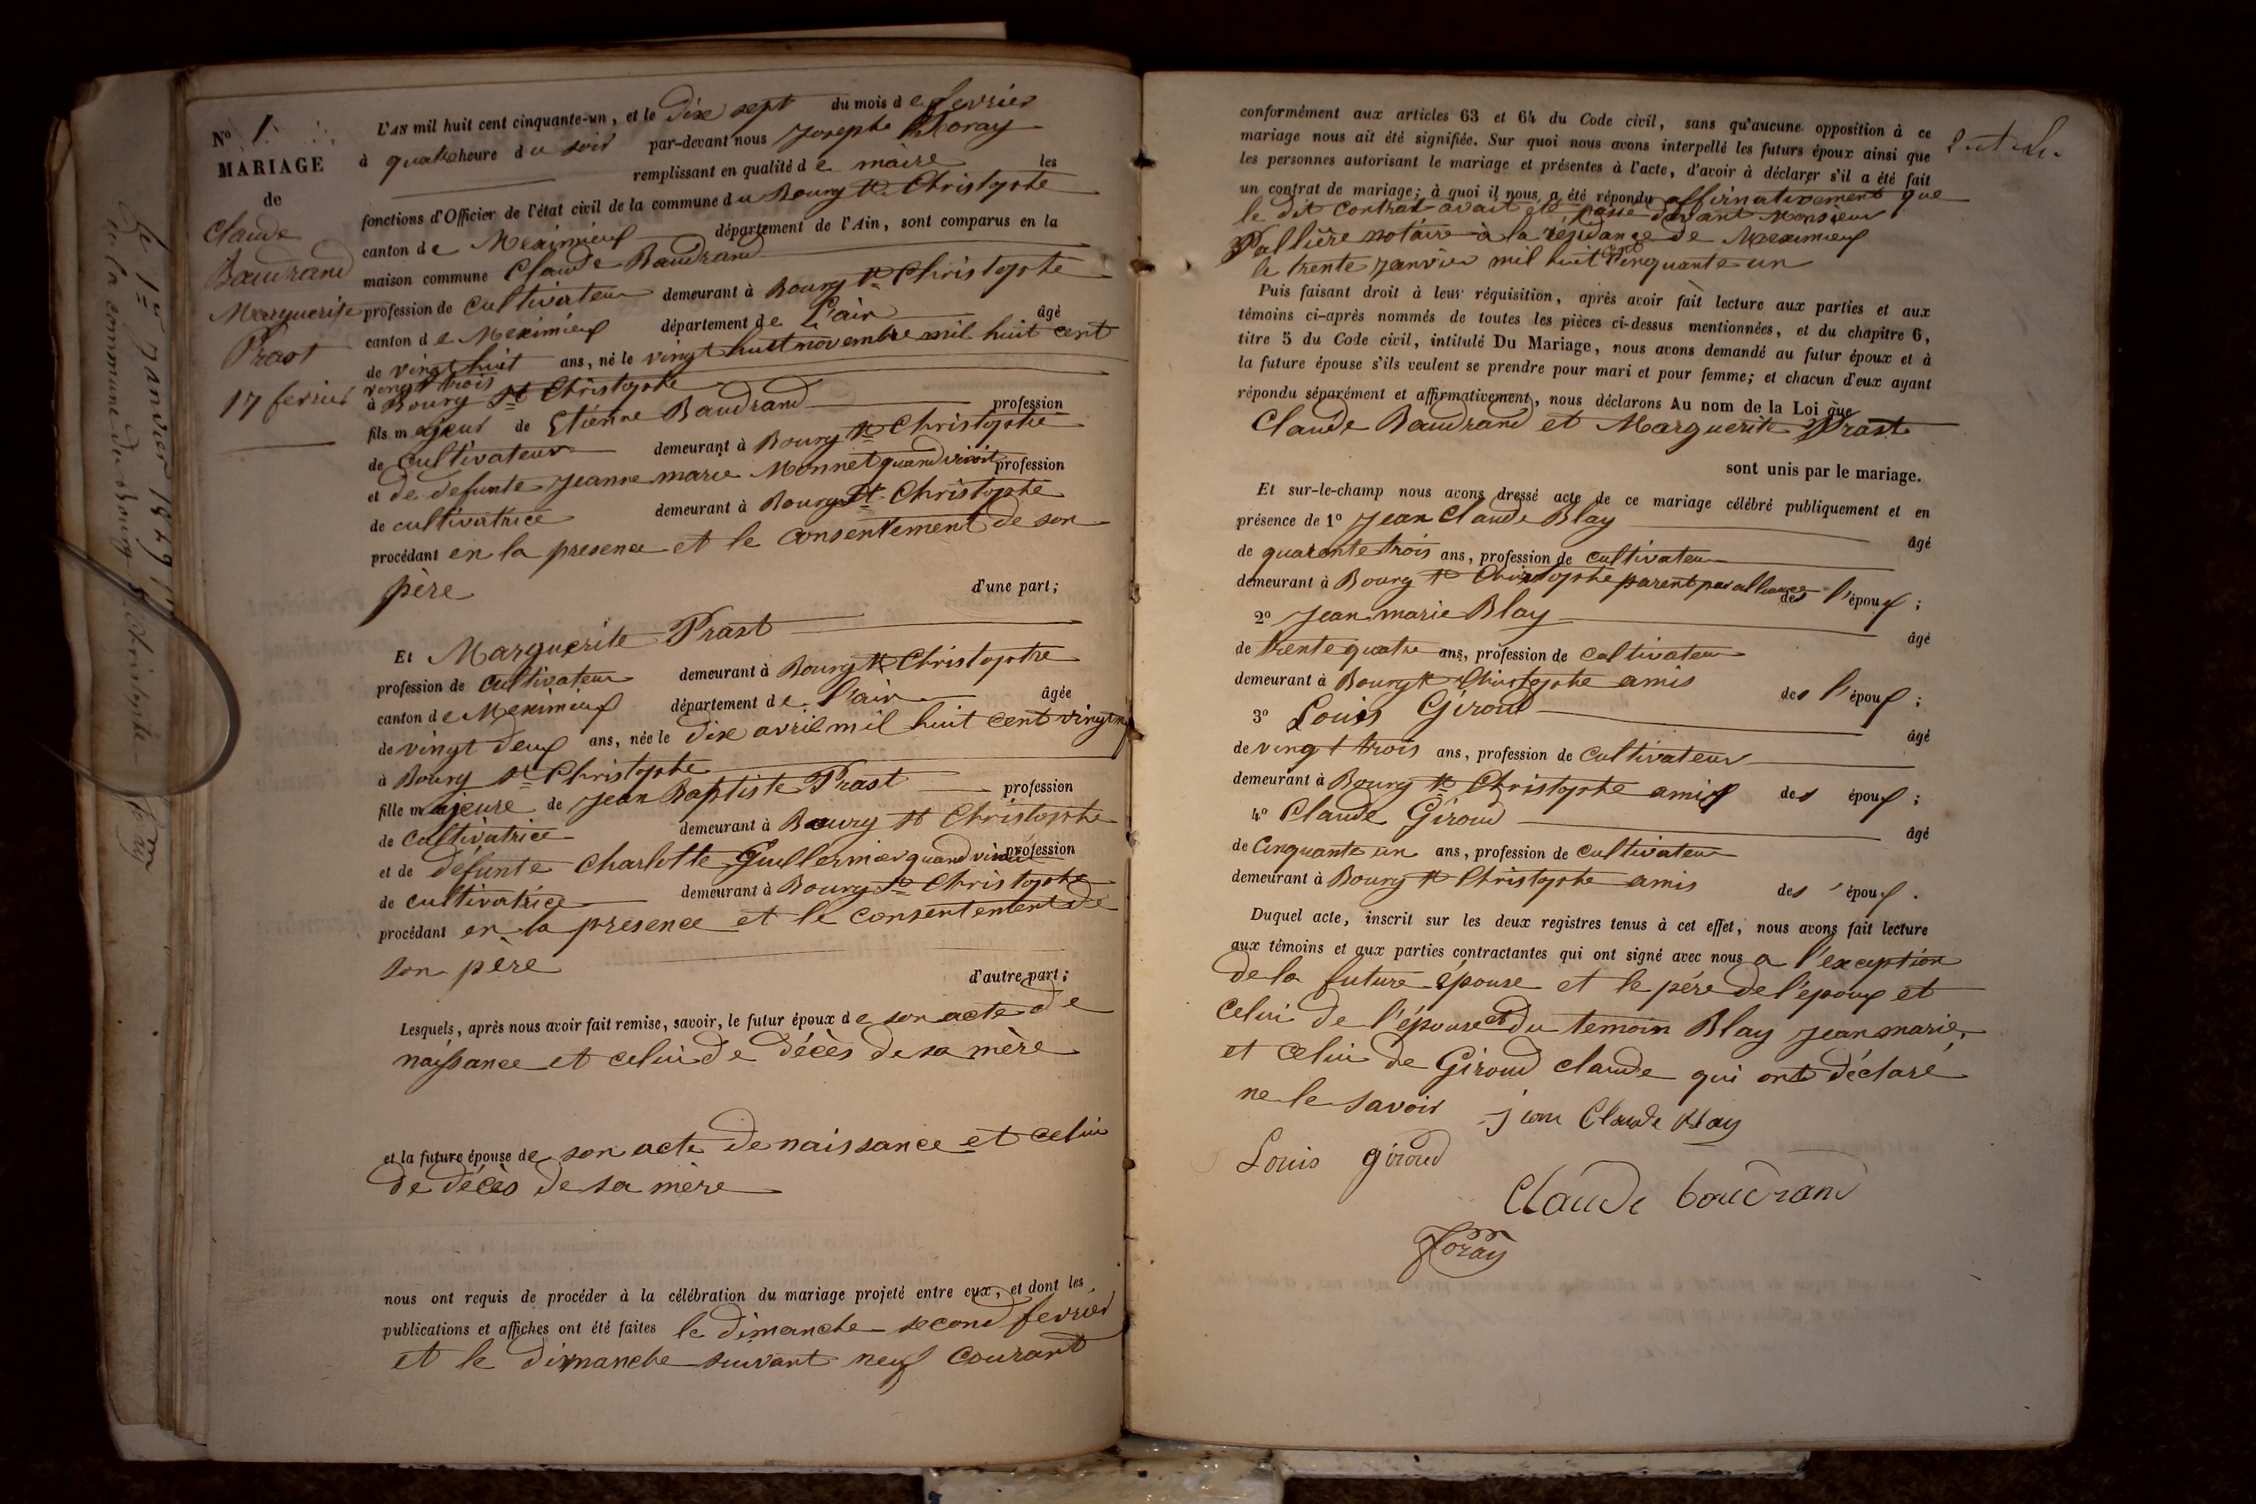 N° 1
MARIAGE
de
Claude
Baudrand
Marguerite
Prast
17 fevrier
L'AN mil huit cent cinquante-un, et le dix sept du mois de fevrier
à quatre heure du soir par-devant nous Josephe Moray
remplissant en qualité de maire les
fonctions d'Officier de l'état civil de la commune du Bourg St Christophe
canton de Meximieux département de l'Ain, sont comparus en la
maison commune Claude Baudrand
profession de cultivateur demeurant à Bourg St Christophe
canton de Meximieux département de l'ain âgé
de vingt huit ans, né le vingt huit novembre mil huit cent
vingt trois
à Bourg St Christophe
fils majeur de Etienne Baudrand profession
de cultivateur demeurant à Bourg St Christophe
et de defunte Jeanne marie Monnet quand vivait profession
de cultivatrice demeurant à Bourg St Christophe
procédant en la presence et le consentement de son
père d'une part;
Et Marguerite Prast
profession de cultivateur demeurant à Bourg St Christophe
canton de Meximieux département de l'ain âgée
de vingt deux ans, née le dix avril mil huit cent vingt
à Bourg St Christophe
fille majeure de Jean Baptiste Prast profession
de cultivatrice demeurant à Bourg St Christophe
et de défunte Charlotte Guillermier quand vivait profession
de cultivatrice demeurant à Bourg St Christophe
procédant en la presence et le consentement de
son père d'autre part;
Lesquels, après nous avoir fait remise, savoir, le futur époux de son acte de
naissance et celui de décès de sa mère
et la future épouse de son acte de naissance et celui
de décès de sa mère
nous ont requis de procéder à la célébration du mariage projeté entre eux, et dont les
publications et affiches ont été faites le dimanche second fevrier
et le dimanche suivant neuf courant
conformément aux articles 63 et 64 du Code civil, sans qu'aucune opposition à ce
mariage nous ait été signifiée. Sur quoi nous avons interpellé les futurs époux ainsi que
les personnes autorisant le mariage et présentes à l'acte, d'avoir à déclarer s'il a été fait
un contrat de mariage; à quoi il nous a été répondu affirnativement que
le dit contrat avait été passé devant Monsieur
Pallière notaire à la résidance de Meximieux
le trente janvier mil huit cent cinquante un
Puis faisant droit à leur réquisition, après avoir fait lecture aux parties et aux
témoins ci-après nommés de toutes les pièces ci-dessus mentionnées, et du chapitre 6,
titre 5 du Code civil, intitulé Du Mariage, nous avons demandé au futur époux et à
la future épouse s'ils veulent se prendre pour mari et pour femme; et chacun d'eux ayant
répondu séparément et affirmativement, nous déclarons Au nom de la Loi que
Claude Baudrand et Marguerite Prast
sont unis par le mariage.
Et sur-le-champ nous avons dressé acte de ce mariage célébré publiquement et en
présence de 1° Jean Claude Blay âgé
de quarente trois ans, profession de cultivateur
demeurant à Bourg St Christophe parent par alliance de l'époux;
2° Jean marie Blay âgé
de trente quatre ans, profession de cultivateur
demeurant à Bourg St Christophe amis des l'époux;
3° Louis Giroud âgé
de vingt trois ans, profession de cultivateur
demeurant à Bourg St Christophe amis des époux;
4° Claude Giroud âgé
de Cinquante un ans, profession de cultivateur
demeurant à Bourg St Christophe amis des époux.
Duquel acte, inscrit sur les deux registres tenus à cet effet, nous avons fait lecture
aux témoins et aux parties contractantes qui ont signé avec nous a l'exception
de la future épouse et le père de l'époux et
celui de l'épouse et du temoin Blay Jean marie,
et celui de Giroud claude qui ont déclaré
ne le savoir
jean Claude Blay
Louis giroud
Claude baudrand
Moray